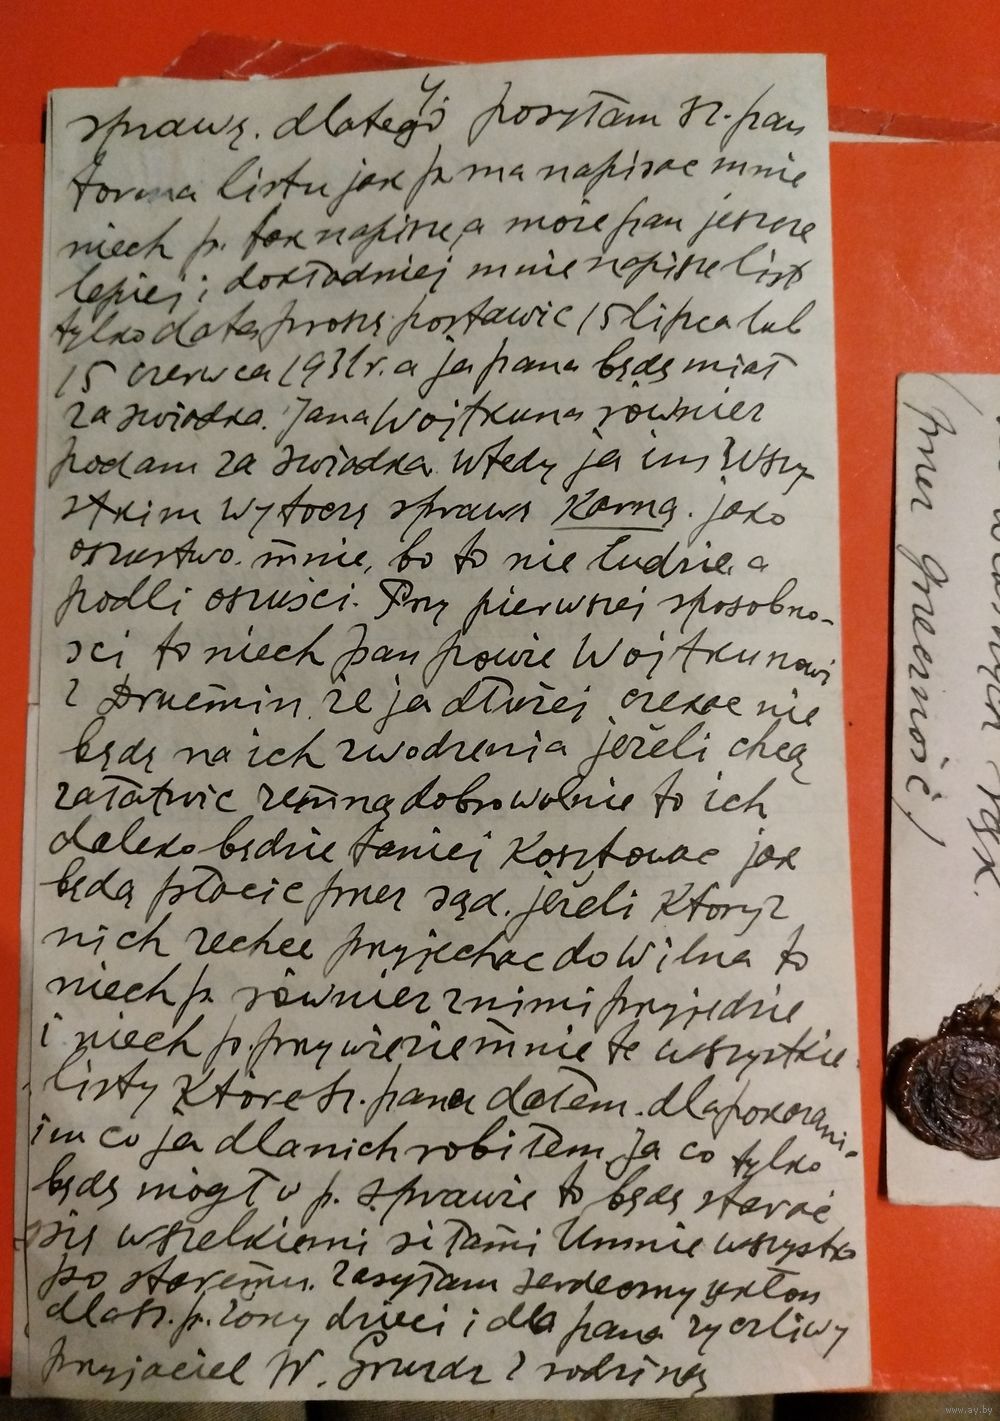 sprawę. dlategój posyłam sz. pan
forma listu jak p. ma napisac mnie
niech p. tak napisze, a może pan jeszcze
lepiej i dokładniej mnie napisze list
tylko data proszę postawic 15 lipca lub
15 czerwca 1931 r. a ja pana będę miał
za swiadka. Jana Wojtkuna równiez
podam za swiadka. Wtedy ja im Wszy
stkim Wytoczę sprawę Karną. jako
oszustwo. mnie, bo to nie ludzie. a
podli oszuści. Przy pierwszej sposobno-
sci to niech pan powie Wojtkunowi
i że ja dłużej czekac nie
będę na ich zwodzenia jeżeli chcą
załatwic zemną dobrowolnie to ich
daleko będzie taniej Kosztowac jak
będą płacic przez sąd. jeżeli Ktory z
nich zechce przyjechac do Wilna to
niech p. równiez z nimi przyjedzie
i niech p. przywiezie mnie te wszystkie
listy Które sz. pana dałem. dla pokazani-
im co ja dla nich robiłem Ja co tylko
będę mógł w p. sprawie to będę starac
się wszelkiemi siłami U mnie wszystko
po staremu. Zasyłam serdeczny ukłon
dla sz. p. żony dzieci i dla pana zyczliwy
przyjaciel W. Gruzdz z rodziną
przez Grzeczność!
www.ay.by